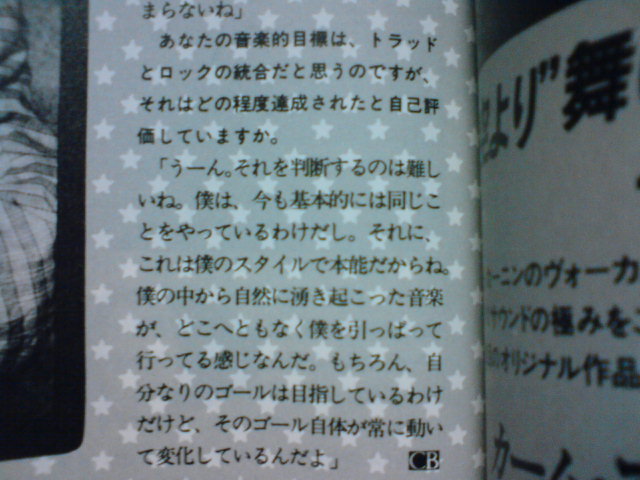 まらないね」
あなたの音楽的目標は、トラッド
とロックの統合だと思うのですが、
それはどの程度達成されたと自己評
価していますか。
「うーん。それを判断するのは難し
いね。僕は、今も基本的には同じこ
とをやっているわけだし。それに、
これは僕のスタイルで本能だからね。
僕の中から自然に湧き起こった音楽
が、どこへともなく僕を引っぱって
行ってる感じなんだ。もちろん、自
分なりのゴールは目指しているわけ
だけど、そのゴール自体が常に動い
て変化しているんだよ」 CB
より"舞
ーニンのヴォーカ
サウンドの極みを
のオリジナル作品